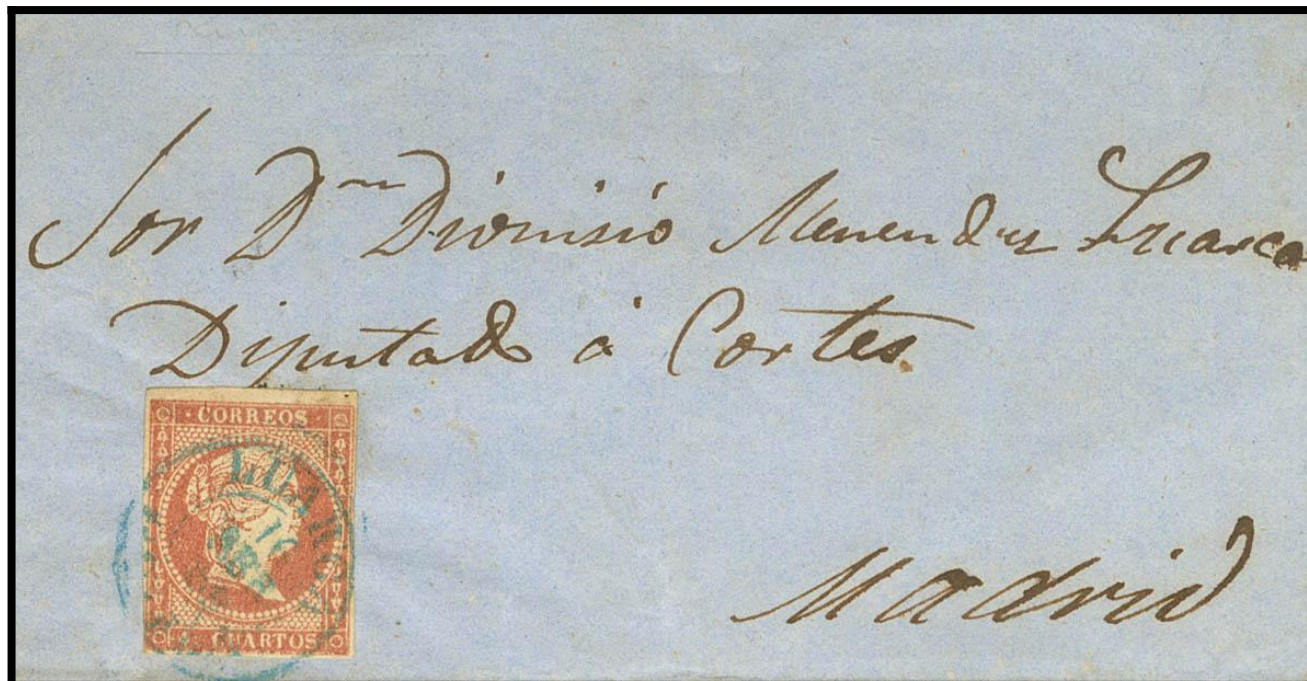 Sor Dn Dionisio Menendez Luarca
Diputado á Cortes
Madrid
CORREOS
LUARCA
CUARTOS